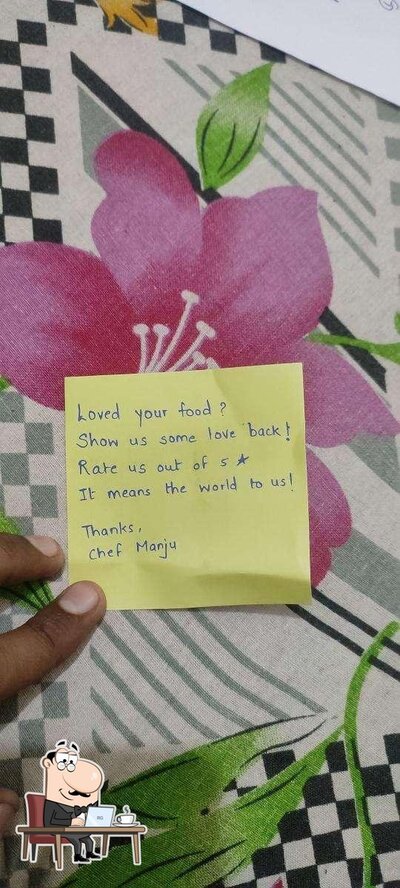 Loved your food?
Show us some love back!
Rate us out of 5 ★
It means the world to us!
Thanks,
Chef Manju
RG